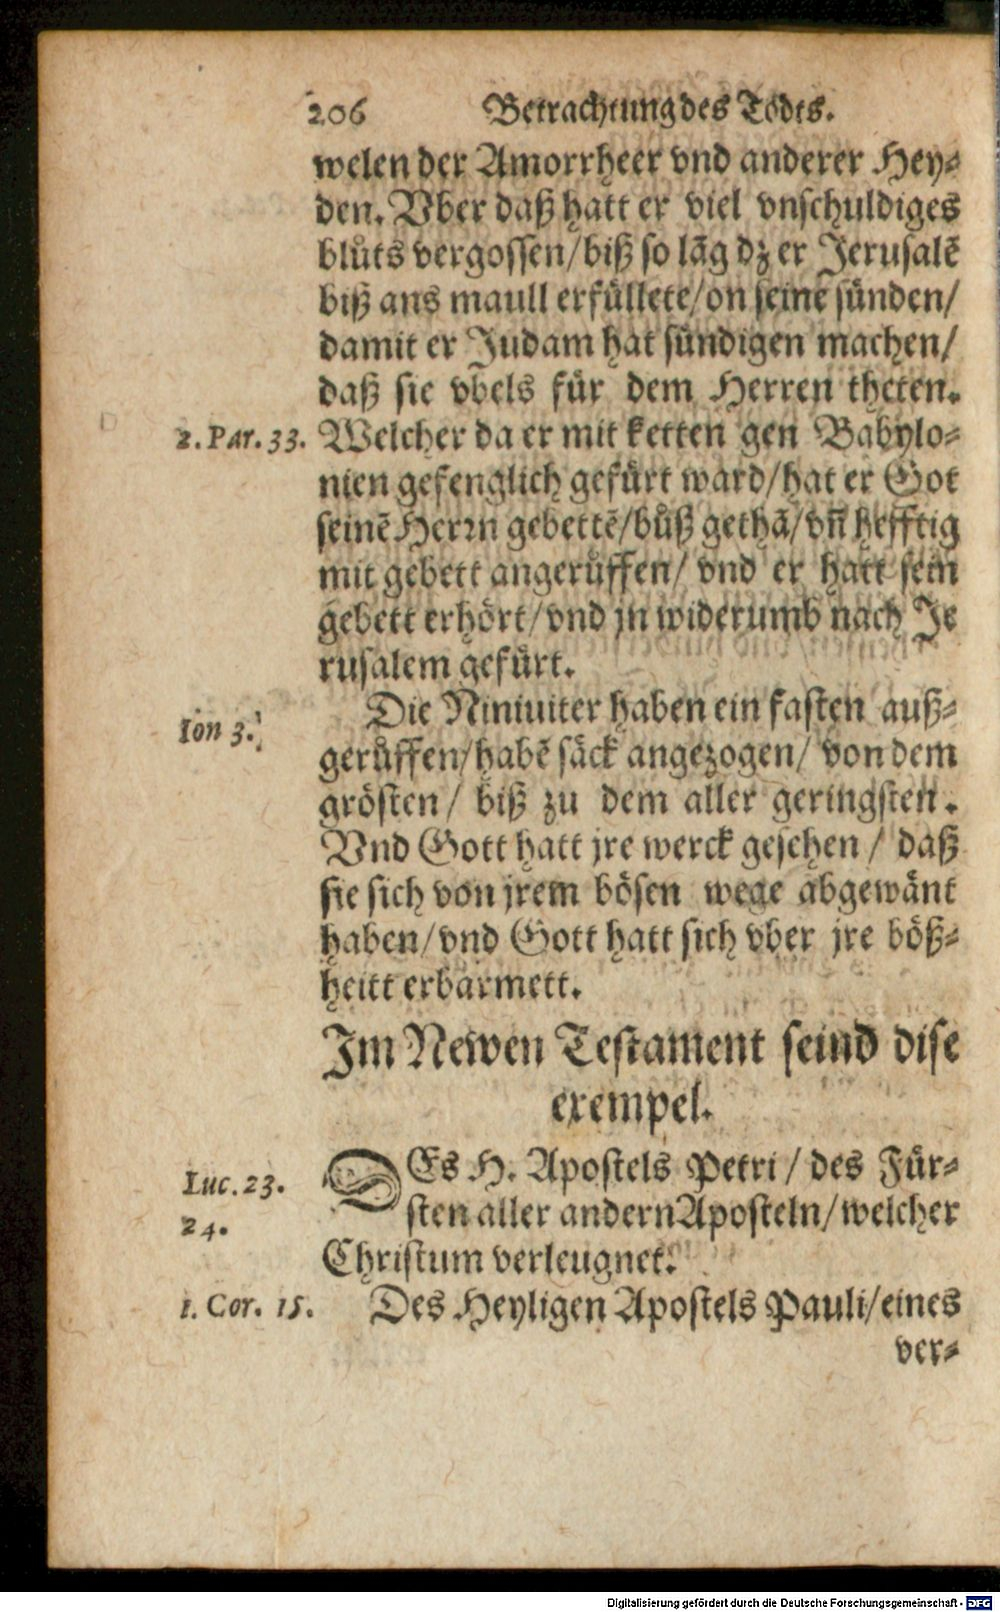 206 Betrachtung des Todts.
welen der Amorrheer vnd anderer Hey⸗
den. Vber daß hatt er viel vnschuldiges
blůts vergossen/biß so lãg dz er Jerusalẽ
biß ans maull erfüllete/on seine sünden/
damit er Judam hat sündigen machen/
daß sie vbels für dem Herren theten.
2. Par. 33. Welcher da er mit ketten gen Babylo⸗
nien gefenglich gefürt ward/hat er Got
seinẽ Herrn gebettẽ/bůß gethã/vñ hefftig
mit gebett angerůffen/ vnd er hatt sein
gebett erhört/vnd jn widerumb nach Je
rusalem gefürt.
Ion 3. Die Niniuiter haben ein fasten auß⸗
gerůffen/habẽ säck angezogen/ von dem
grösten/ biß zu dem aller geringsten.
Vnd Gott hatt jre werck gesehen / daß
sie sich von jrem bösen wege abgewänt
haben/vnd Gott hatt sich vber jre böß⸗
heitt erbarmett.
Im Newen Testament seind dise
exempel.
Luc. 23. DEs H. Apostels Petri / des Für⸗
24. sten aller andern Aposteln/welcher
Christum verleugnet.
1. Cor. 15. Des Heyligen Apostels Pauli/eines
ver⸗
Digitalisierung gefördert durch die Deutsche Forschungsgemeinschaft - DFG